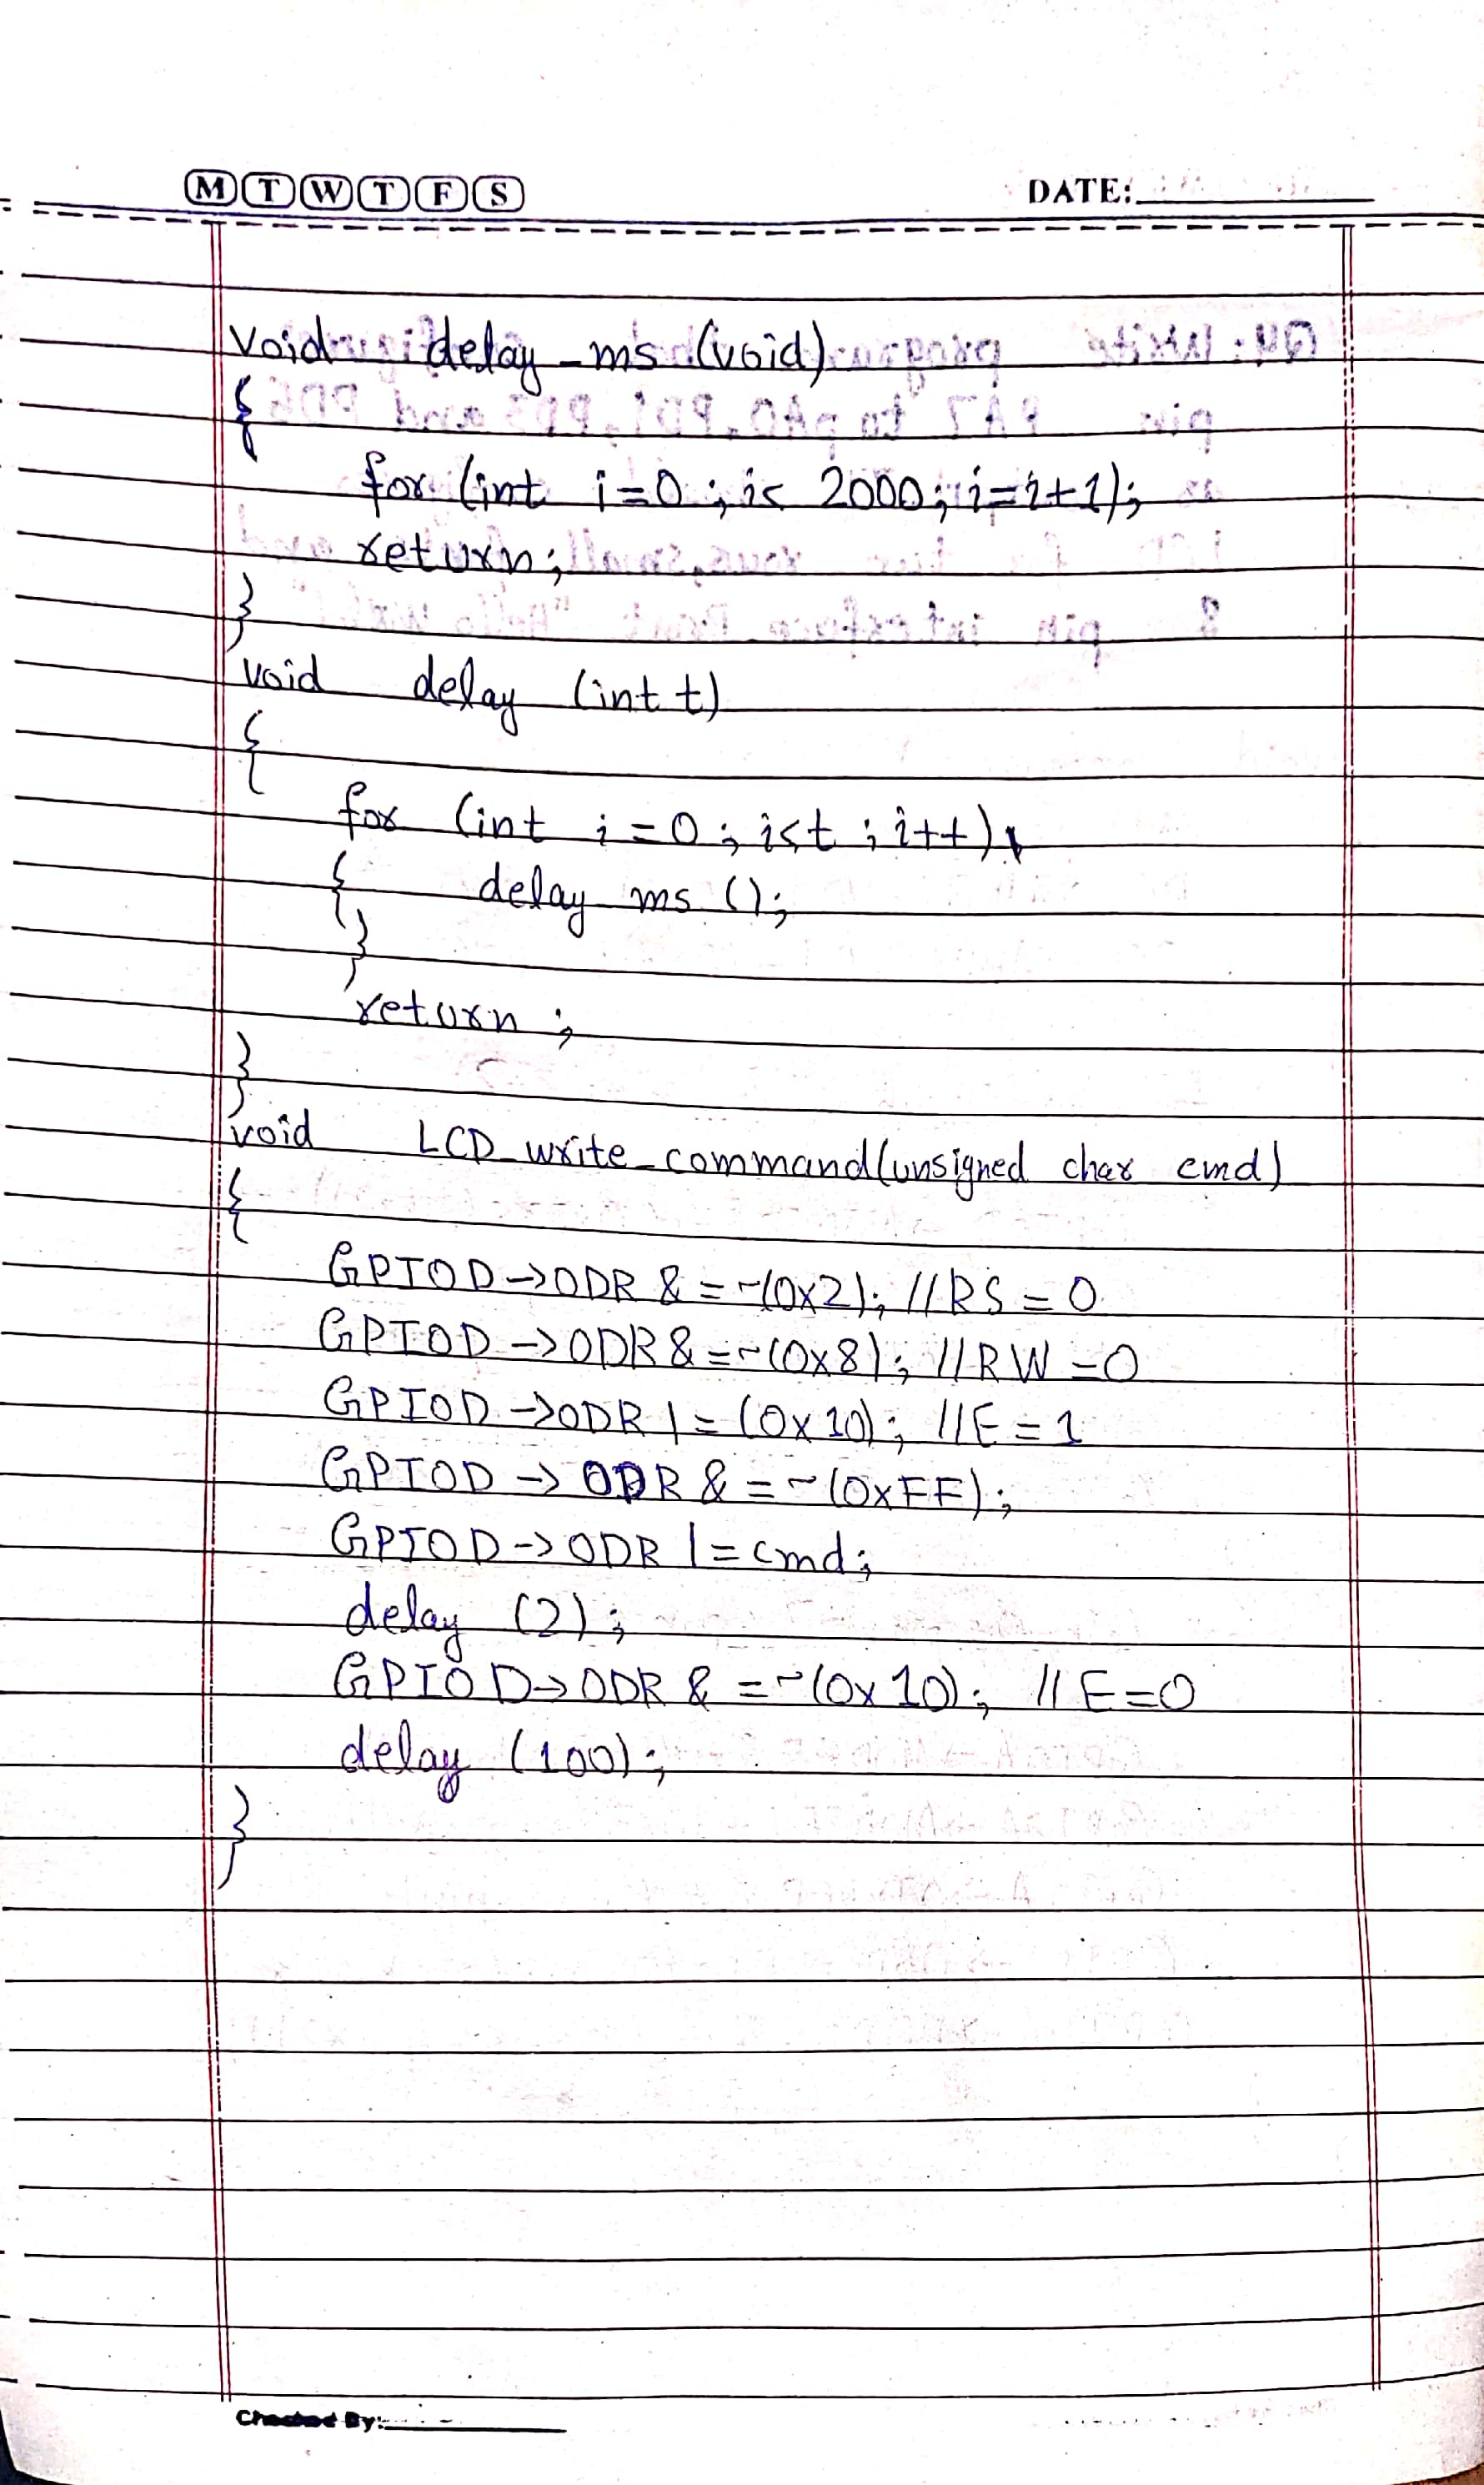 M T W T F S
DATE:
void delay_ms (void)
{
for (int i=0; i< 2000; i=i+1);
return;
}
void delay (int t)
{
for (int i=0; i<t; i++)
{ delay ms ();
}
return;
}
void LCD_write_command(unsigned char cmd)
{
GPIOD->ODR &=~(0x2); //RS=0
GPIOD->ODR &=~(0x8); //RW=0
GPIOD->ODR |= (0x10); //E=1
GPIOD->ODR &=~(0xFF);
GPIOD->ODR |= cmd;
delay (2);
GPIOD->ODR &=~(0x10); //E=0
delay (100);
}
Checked By: